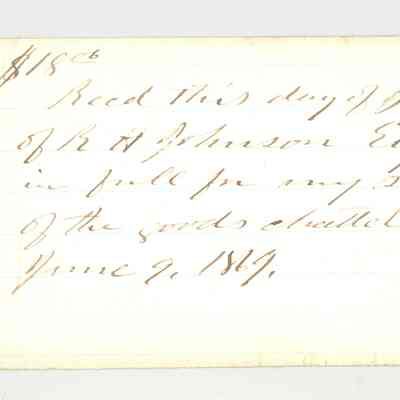 $18.00
Recd this day of
of R H Johnson
in full for my
of the goods chattel
June 9, 1869.